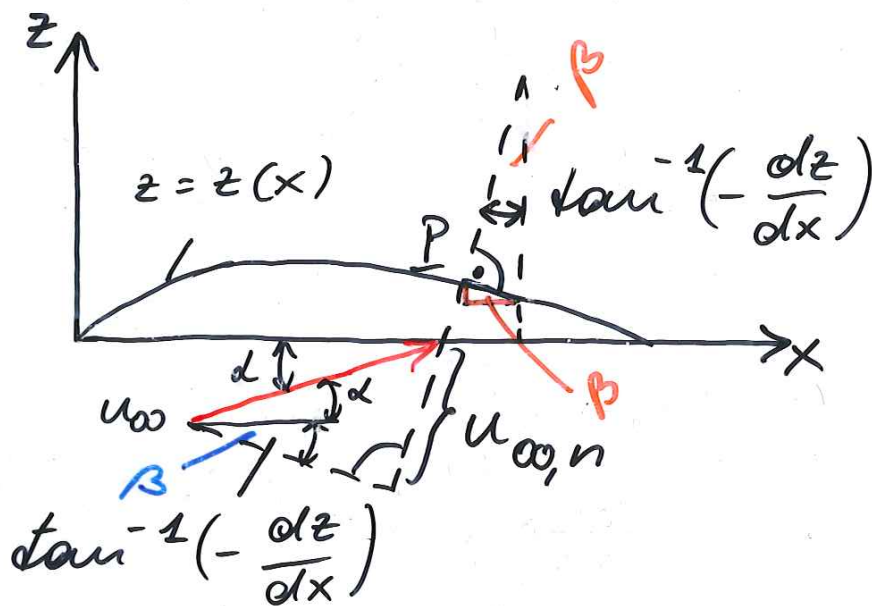 z
β
z = z(x)
tan⁻¹(- dz/dx)
P
x
α
α
u∞
β
u∞,n
β
tan⁻¹(- dz/dx)